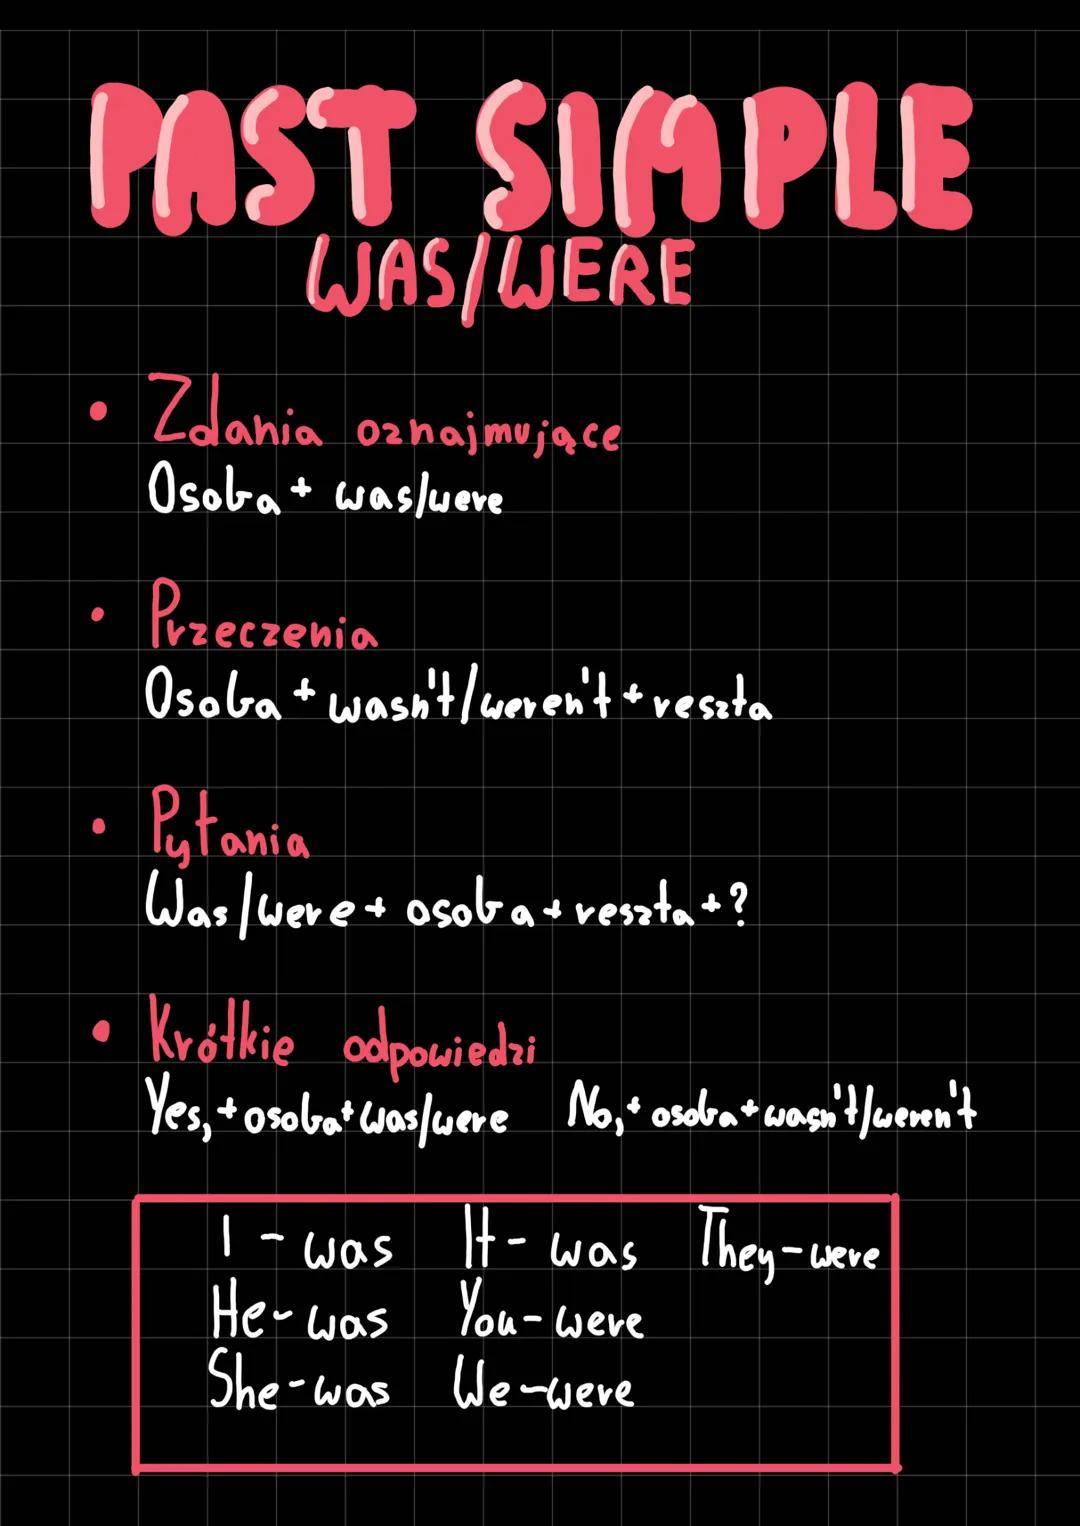 PAST SIMPLE
WAS/WERE
• Zdania oznajmujące
Osoba + was/were
• Przeczenia
Osoba + wasn't/weren't + reszta
• Pytania
Was/were + osoba + reszta + ?
• Krótkie odpowiedzi
Yes, + osoba + was/were No, + osoba + wasn't/weren't
I - was It - was They - were
He - was You - were
She - was We - were